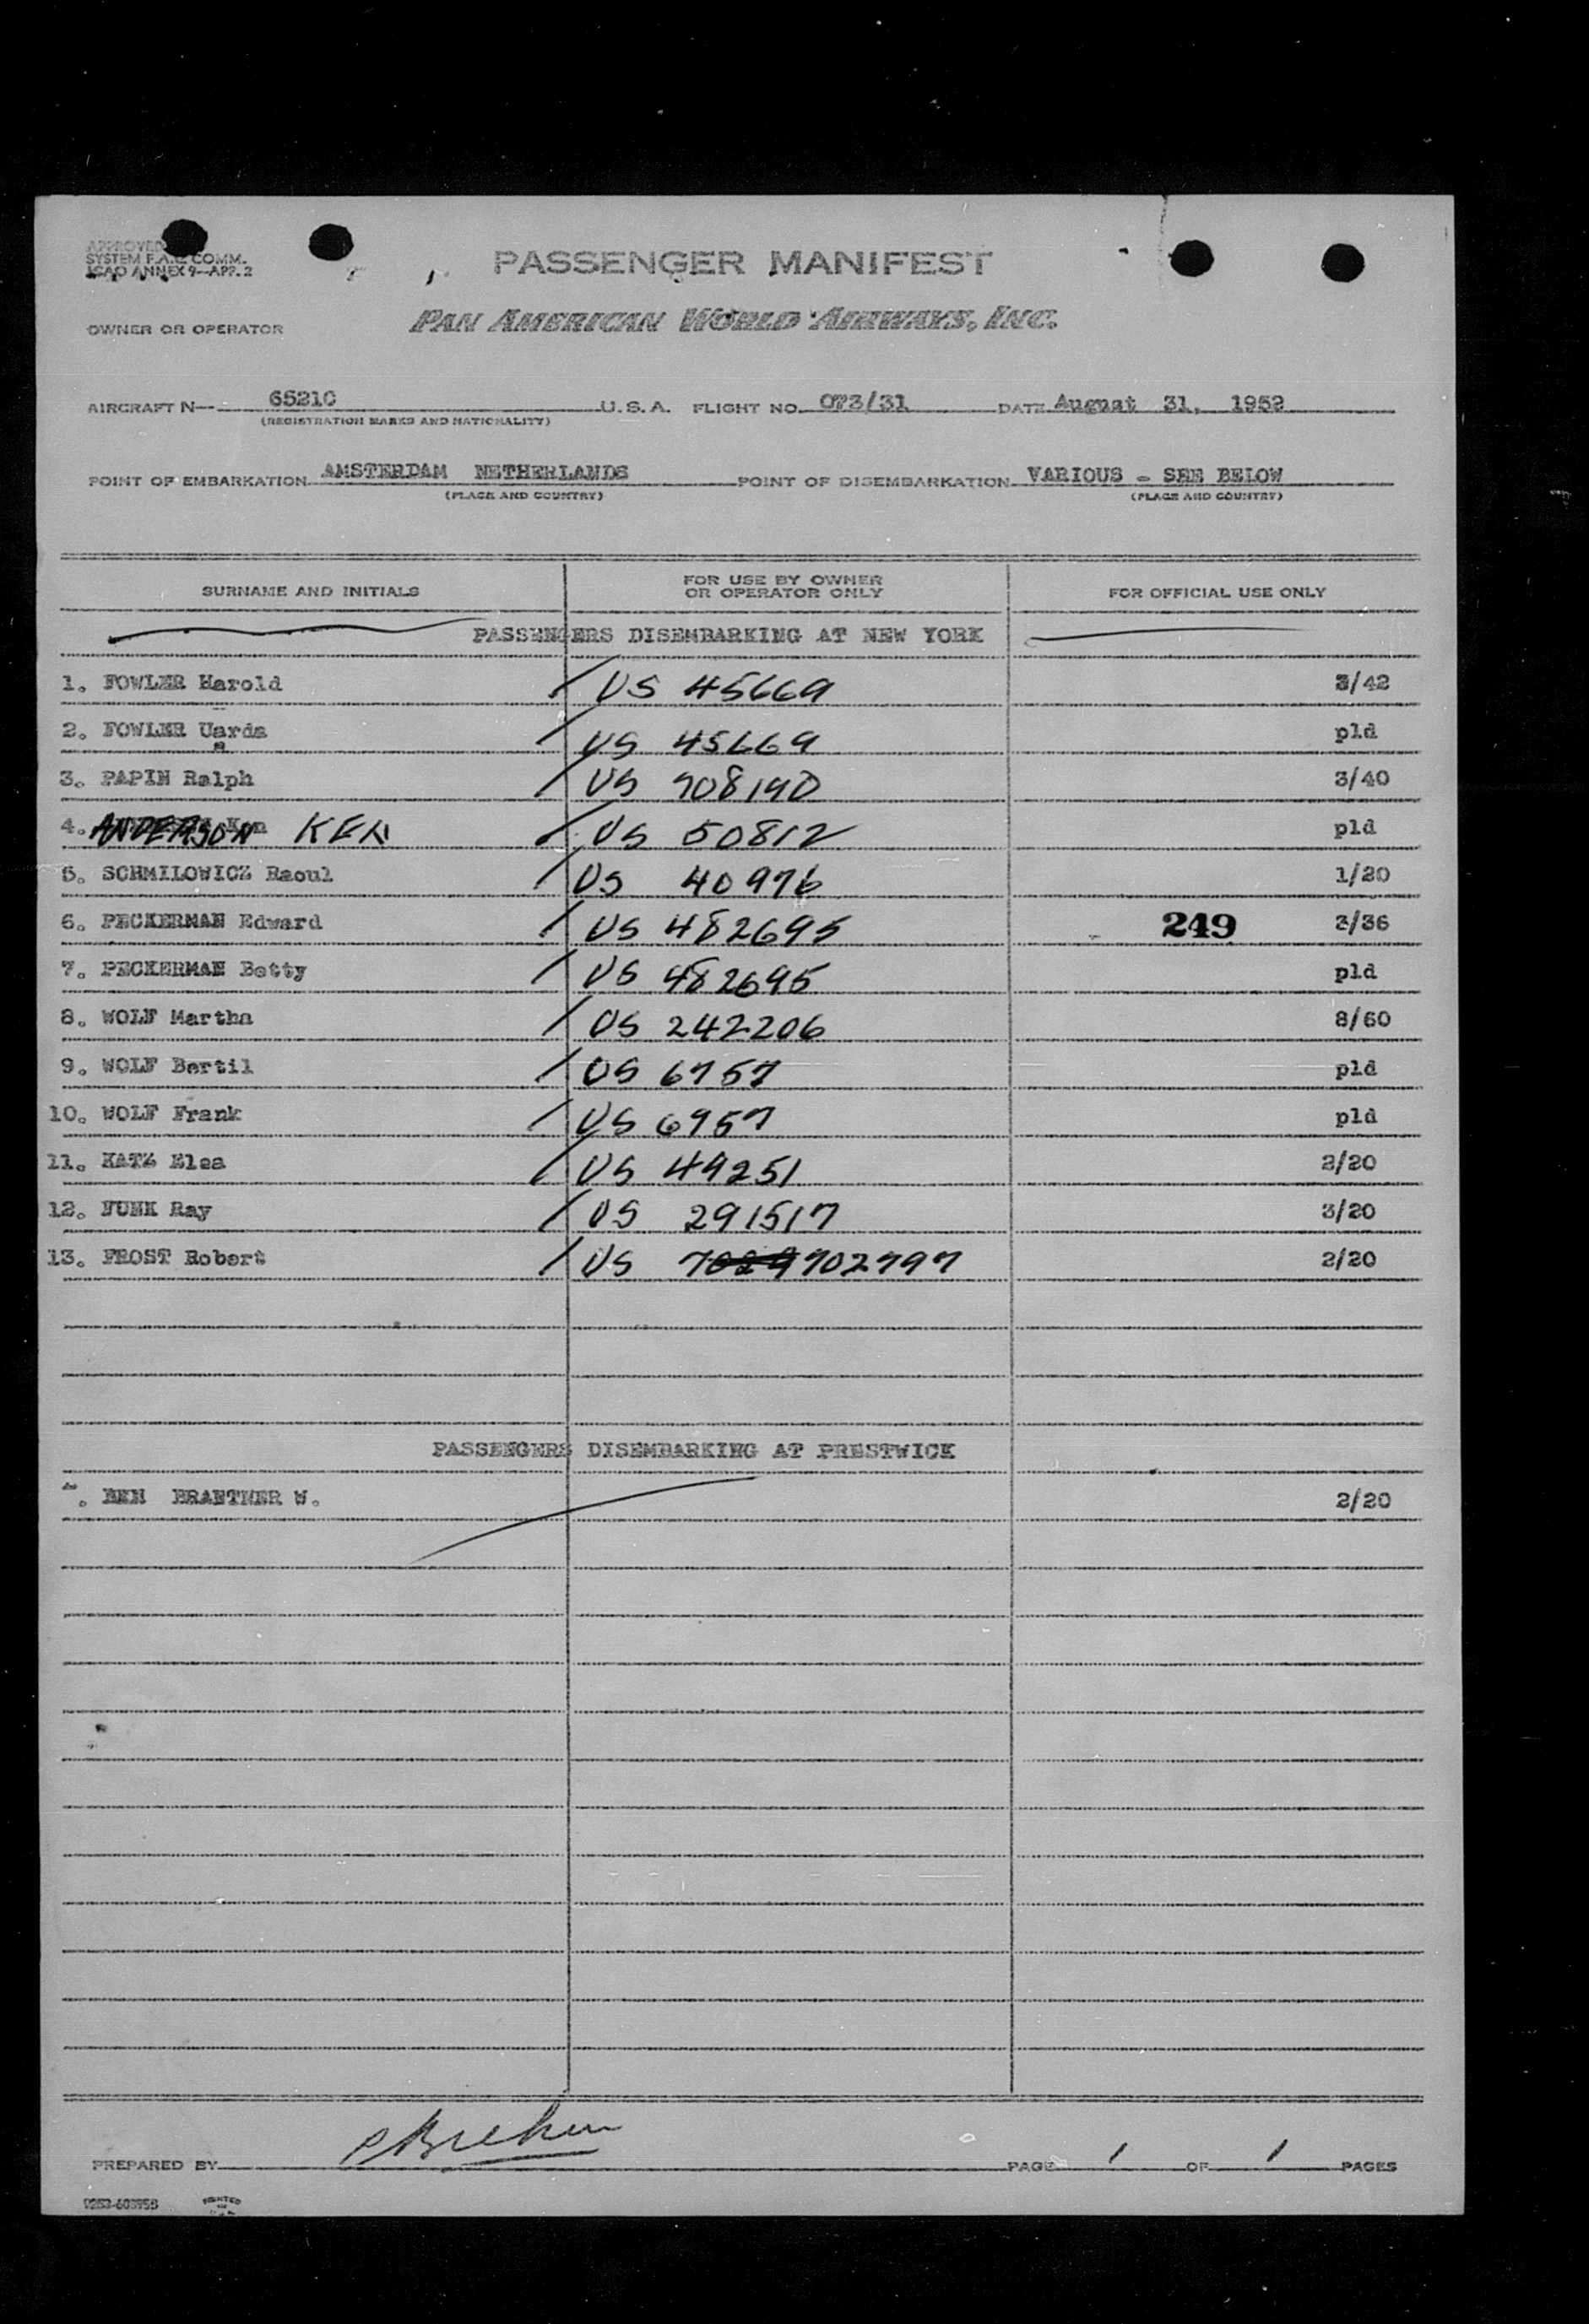 APPROVED
SYSTEM F.A.L. COMM.
ICAO ANNEX 9-APP. 2
PASSENGER MANIFEST
OWNER OR OPERATOR PAN AMERICAN WORLD AIRWAYS, INC.
AIRCRAFT N- 65210 U.S.A. FLIGHT NO. 073/31 DATE August 31, 1952
(REGISTRATION MARKS AND NATIONALITY)
POINT OF EMBARKATION AMSTERDAM NETHERLANDS POINT OF DISEMBARKATION VARIOUS - SEE BELOW
(PLACE AND COUNTRY) (PLACE AND COUNTRY)
SURNAME AND INITIALS FOR USE BY OWNER OR OPERATOR ONLY FOR OFFICIAL USE ONLY
PASSENGERS DISEMBARKING AT NEW YORK
1. FOWLER Harold US 45669 3/42
2. FOWLER Uarda US 45669 pld
3. PAPIN Ralph US 708190 3/40
4. ANDERSON KEN US 50812 pld
5. SCHMILOWICZ Raoul US 40976 1/20
6. PECKERMAN Edward US 482695 249 3/36
7. PECKERMAN Betty US 482695 pld
8. WOLF Martha US 242206 8/60
9. WOLF Bertil US 6757 pld
10. WOLF Frank US 6957 pld
11. KATZ Elsa US 49251 2/20
12. FUNK Ray US 291517 3/20
13. FROST Robert US 7029702797 2/20
PASSENGERS DISEMBARKING AT PRESTWICK
BEN BRANTNER W. 2/20
PREPARED BY PAGE 1 OF 1 PAGES